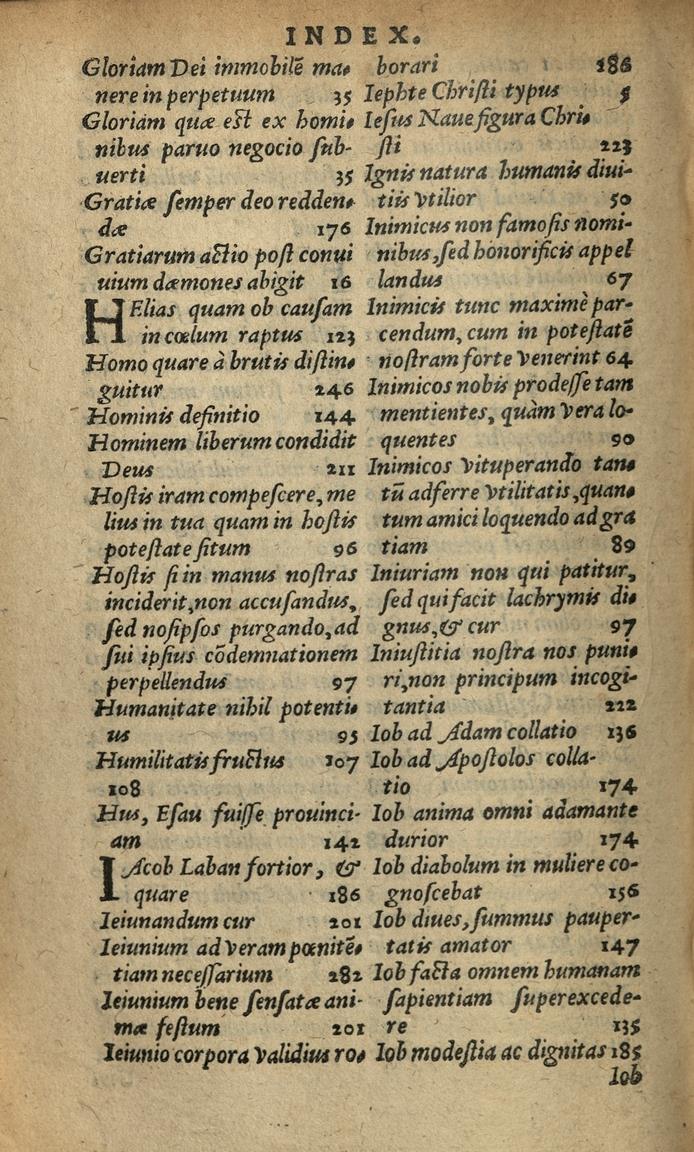 INDEX.
Gloriam Dei immobilẽ ma-
nere in perpetuum 35
Gloriam quæ est ex homi-
nibus paruo negocio sub-
uerti 35
Gratiæ semper deo redden-
dæ 176
Gratiarum actio post conui
uium dæmones abigit 16
HElias quam ob causam
in cœlum raptus 123
Homo quare à brutis distin-
guitur 246
Hominis definitio 144
Hominem liberum condidit
Deus 211
Hostis iram compescere, me
lius in tua quam in hostis
potestate situm 96
Hostis si in manus nostras
inciderit, non accusandus,
sed nosipsos purgando, ad
sui ipsius cõdemnationem
perpellendus 97
Humanitate nihil potenti-
us 95
Humilitatis fructus 107
108
Hus, Esau fuisse prouinci-
am 142
IAcob Laban fortior, &
quare 186
Ieiunandum cur 201
Ieiunium ad veram pœnitẽ-
tiam necessarium 282
Ieiunium bene sensatæ ani-
mæ festum 201
Ieiunio corpora validius ro-
borari 186
Iephte Christi typus 5
Iesus Naue figura Chri-
sti 223
Ignis natura humanis diui-
tiis vtilior 50
Inimicus non famosis nomi-
nibus, sed honorificis appel
landus 67
Inimicis tunc maximè par-
cendum, cum in potestatẽ
nostram forte venerint 64
Inimicos nobis prodesse tam
mentientes, quàm vera lo-
quentes 90
Inimicos vituperando tan-
tũ adferre vtilitatis, quan-
tum amici loquendo ad gra
tiam 89
Iniuriam non qui patitur,
sed qui facit lachrymis di-
gnus, & cur 97
Iniustitia nostra nos puni-
ri, non principum incogi-
tantia 222
Iob ad Adam collatio 136
Iob ad Apostolos colla-
tio 174
Iob anima omni adamante
durior 174
Iob diabolum in muliere co-
gnoscebat 156
Iob diues, summus pauper-
tatis amator 147
Iob facta omnem humanam
sapientiam superexcede-
re 135
Iob modestia ac dignitas 185
Iob